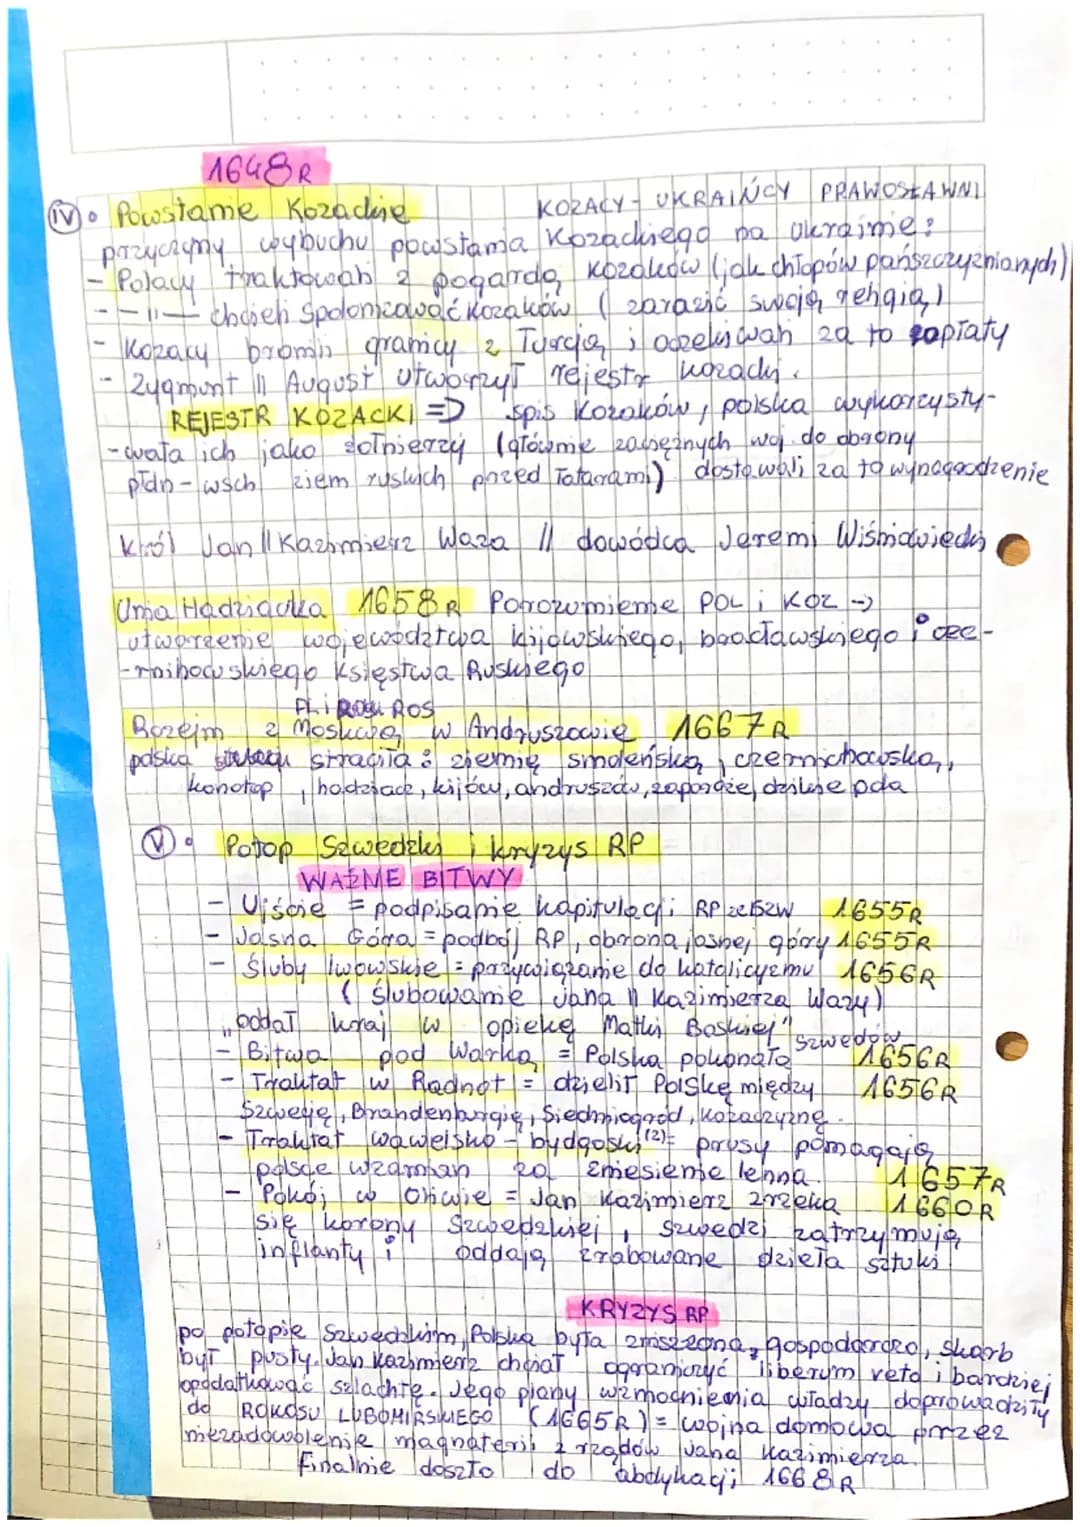 1648R
IV • Powstanie Kozackie KOZACY - UKRAIŃCY PRAWOSŁAWNI
przyczyny wybuchu powstania Kozackiego na Ukrainie:
- Polacy traktowali z pogardą kozaków (jak chłopów pańszczyźnianych)
- -11- chcieli spolonizować Kozaków ( zarazić swoją religią)
- Kozacy bronili granicy z Turcją i oczekiwali za to zapłaty
- Zygmunt II August utworzył rejestr kozacki.
REJESTR KOZACKI => spis Kozaków, polska wykorzysty-
-wała ich jako żołnierzy (głównie zaciężnych woj. do obrony
płdn-wsch ziem ruskich przed Tatarami) dostawali za to wynagrodzenie
Król Jan II Kazimierz Waza // dowódca Jeremi Wiśniowiecki
Unia Hadziacka 1658R Porozumienie POL i KOZ ->
utworzenie województwa kijowskiego, bracławskiego i czer-
-nihowskiego Księstwa Ruskiego
PL i ROS
Rozejm z Moskwą w Andruszowie 1667R
polska straciła: ziemię smoleńską, czernichowską,
konotop, hadziacz, kijów, andruszów, zaporoże, dzikie pola
V • Potop Szwedzki i kryzys RP
WAŻNE BITWY
- Ujście = podpisanie kapitulacji RP ze SZW 1655R
- Jasna Góra = podbój RP, obrona jasnej góry 1655R
- Śluby lwowskie = przywiązanie do katolicyzmu 1656R
( ślubowanie Jana II Kazimierza Wazy)
"oddał kraj w opiekę Matki Boskiej"
szwedów
- Bitwa pod Warką = Polska pokonała 1656R
- Traktat w Radnot = dzielił Polskę między 1656R
Szwecję, Brandenburgię, Siedmiogród, Kozaczyznę.
- Traktat wawelsko-bydgoski (2)= prusy pomagają
polsce wzamian za zniesienie lenna. 1657R
- Pokój w Oliwie = Jan Kazimierz zrzeka 1660R
się korony Szwedzkiej, szwedzi zatrzymują
inflanty i oddają zrabowane dzieła sztuki
KRYZYS RP
po potopie Szwedzkim, Polska była zniszczona, gospodarczo, skarb
był pusty. Jan Kazimierz chciał ograniczyć liberum veto i bardziej
opodatkować szlachtę. Jego plany wzmocnienia władzy doprowadziły
do ROKOSU LUBOMIRSKIEGO (1665R) = wojna domowa przez
niezadowolenie magnaterii z rządów Jana Kazimierza.
Finalnie doszło do abdykacji 1668R